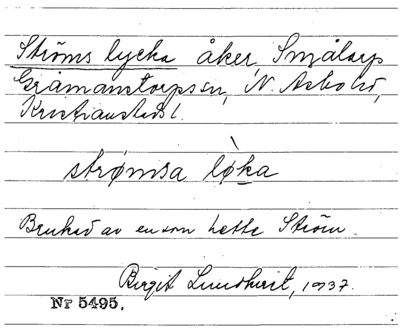 Ströms lycka åker Smålarp
Gråmanstorps sn, N. Åsbo hd,
Kristianstads l.
strømsa løka
Brukad av en som hette Ström.
Birgit Lundkvist, 1937.
Nr 5495.